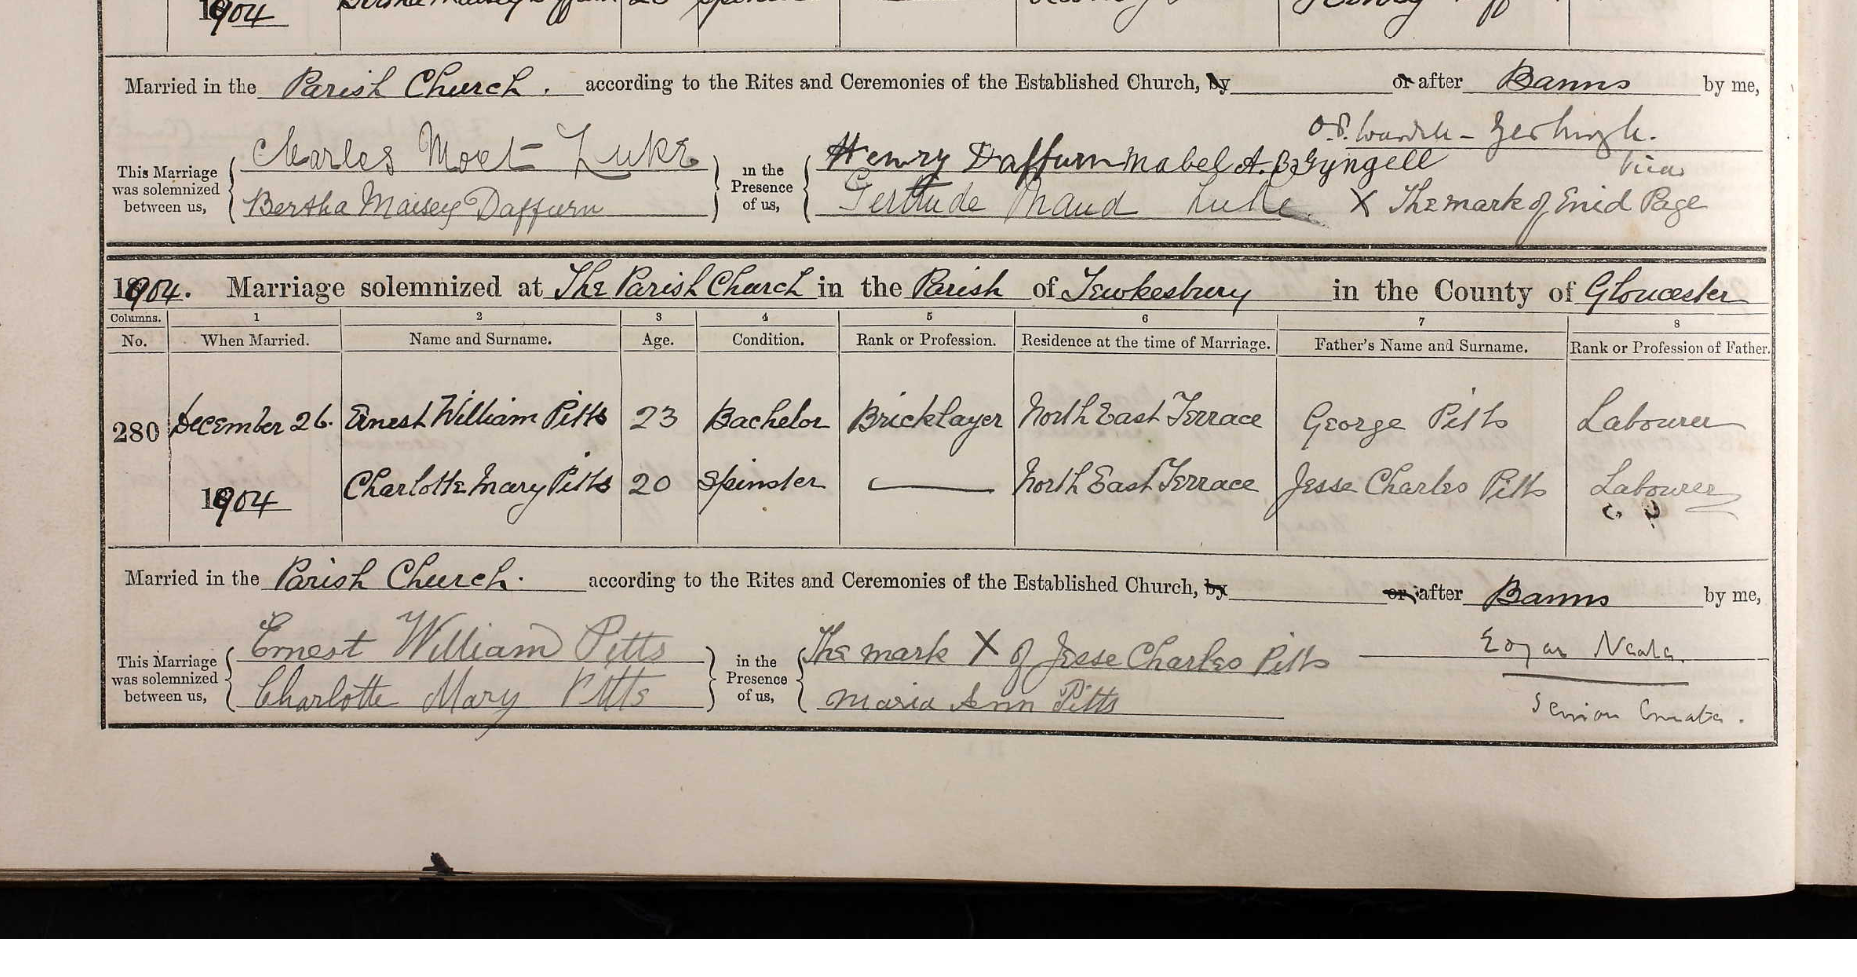 1904
Married in the Parish Church. according to the Rites and Ceremonies of the Established Church, by or after Banns by me,
Charles Moet Luke Henry Daffurn Mabel A. B. Gyngell
Vicar
This Marriage was solemnized between us, in the Presence of us,
Bertha Maisey Daffurn Gertrude Maud Luke. X The mark of Enid Page
1904. Marriage solemnized at The Parish Church in the Parish of Tewkesbury in the County of Gloucester
Columns. 1 2 3 4 5 6 7 8
No. When Married. Name and Surname. Age. Condition. Rank or Profession. Residence at the time of Marriage. Father's Name and Surname. Rank or Profession of Father.
280 December 26. Ernest William Pitts 23 Bachelor Bricklayer North East Terrace George Pitts Labourer
1904 Charlotte Mary Pitts 20 Spinster North East Terrace Jesse Charles Pitts Labourer
Married in the Parish Church. according to the Rites and Ceremonies of the Established Church, by or after Banns by me,
Ernest William Pitts The mark X of Jesse Charles Pitts
This Marriage was solemnized between us, in the Presence of us,
Charlotte Mary Pitts Maria Ann Pitts
Senior Curate.